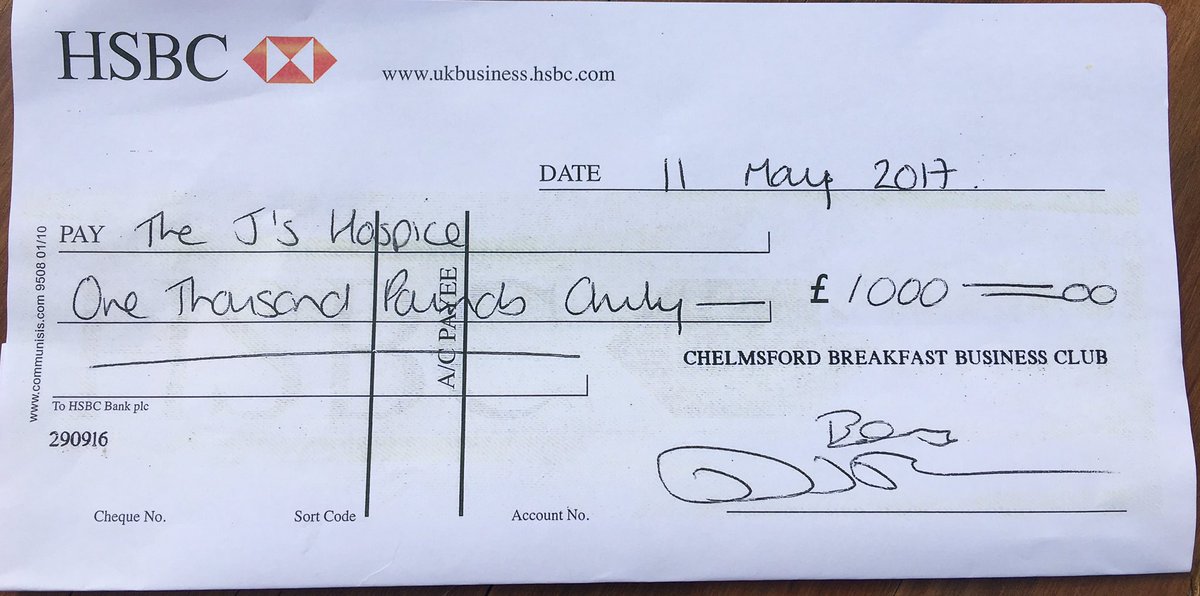 HSBC
www.ukbusiness.hsbc.com
DATE 11 May 2017.
PAY The J's Hospice
One Thousand Pounds Only
£ 1000 00
A/C PAYEE
CHELMSFORD BREAKFAST BUSINESS CLUB
www.communisis.com 9508 01/10
To HSBC Bank plc
290916
Cheque No. Sort Code Account No.